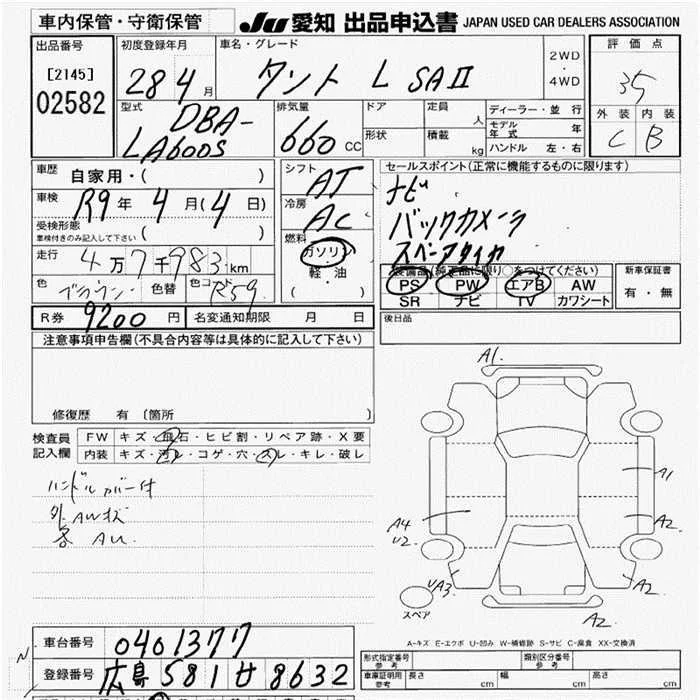 車内保管・守衛保管
JU 愛知 出品申込書 JAPAN USED CAR DEALERS ASSOCIATION
出品番号
[2145]
02582
初度登録年月
28 4 月
車名・グレード
タント L SAⅡ
2WD
・
4WD
評価点
35
外装 内装
C B
型式
DBA-
LA600S
排気量
660 CC
ドア
形状
定員
人
積載
kg
ディーラー・並行
モデル年式 年
ハンドル 左・右
車歴
自家用・( )
車検
R9 年 4 月 (4 日)
受検形態
車検付きのみ記入して下さい ( )
走行
4 万 7 千 983 km
色
ブラウン
色替
色コード
R59
シフト
AT
冷房
AC
燃料
ガソリン
・
軽・油
( )
セールスポイント(正常に機能するものに限ります)
ナビ
バックカメラ
スペアタイヤ
装備品(純正品に限り○をつけてください)
PS PW エアB AW
SR ナビ TV カワシート
新車保証書
有・無
R券 9200 円
名変通知期限 月 日
後日品
注意事項申告欄(不具合内容等は具体的に記入して下さい)
修復歴 有 〔箇所 〕
検査員
記入欄
FW キズ・飛石・ヒビ割・リペア跡・X要
内装 キズ・汚レ・コゲ・穴・スレ・キレ・破レ
ハンドルカバー付
外AWキズ
各 AU
A1
A1
A2
A4
U2
UA3
A2
A2
スペア
A-キズ E-エクボ U-凹み W-補修跡 S-サビ C-腐食 XX-交換済
車台番号
0401377
登録番号
広島 581 せ 8632
形式指定番号
参考
類別区分番号
参考
車庫証明用
参考
長さ cm
幅 cm
高さ cm